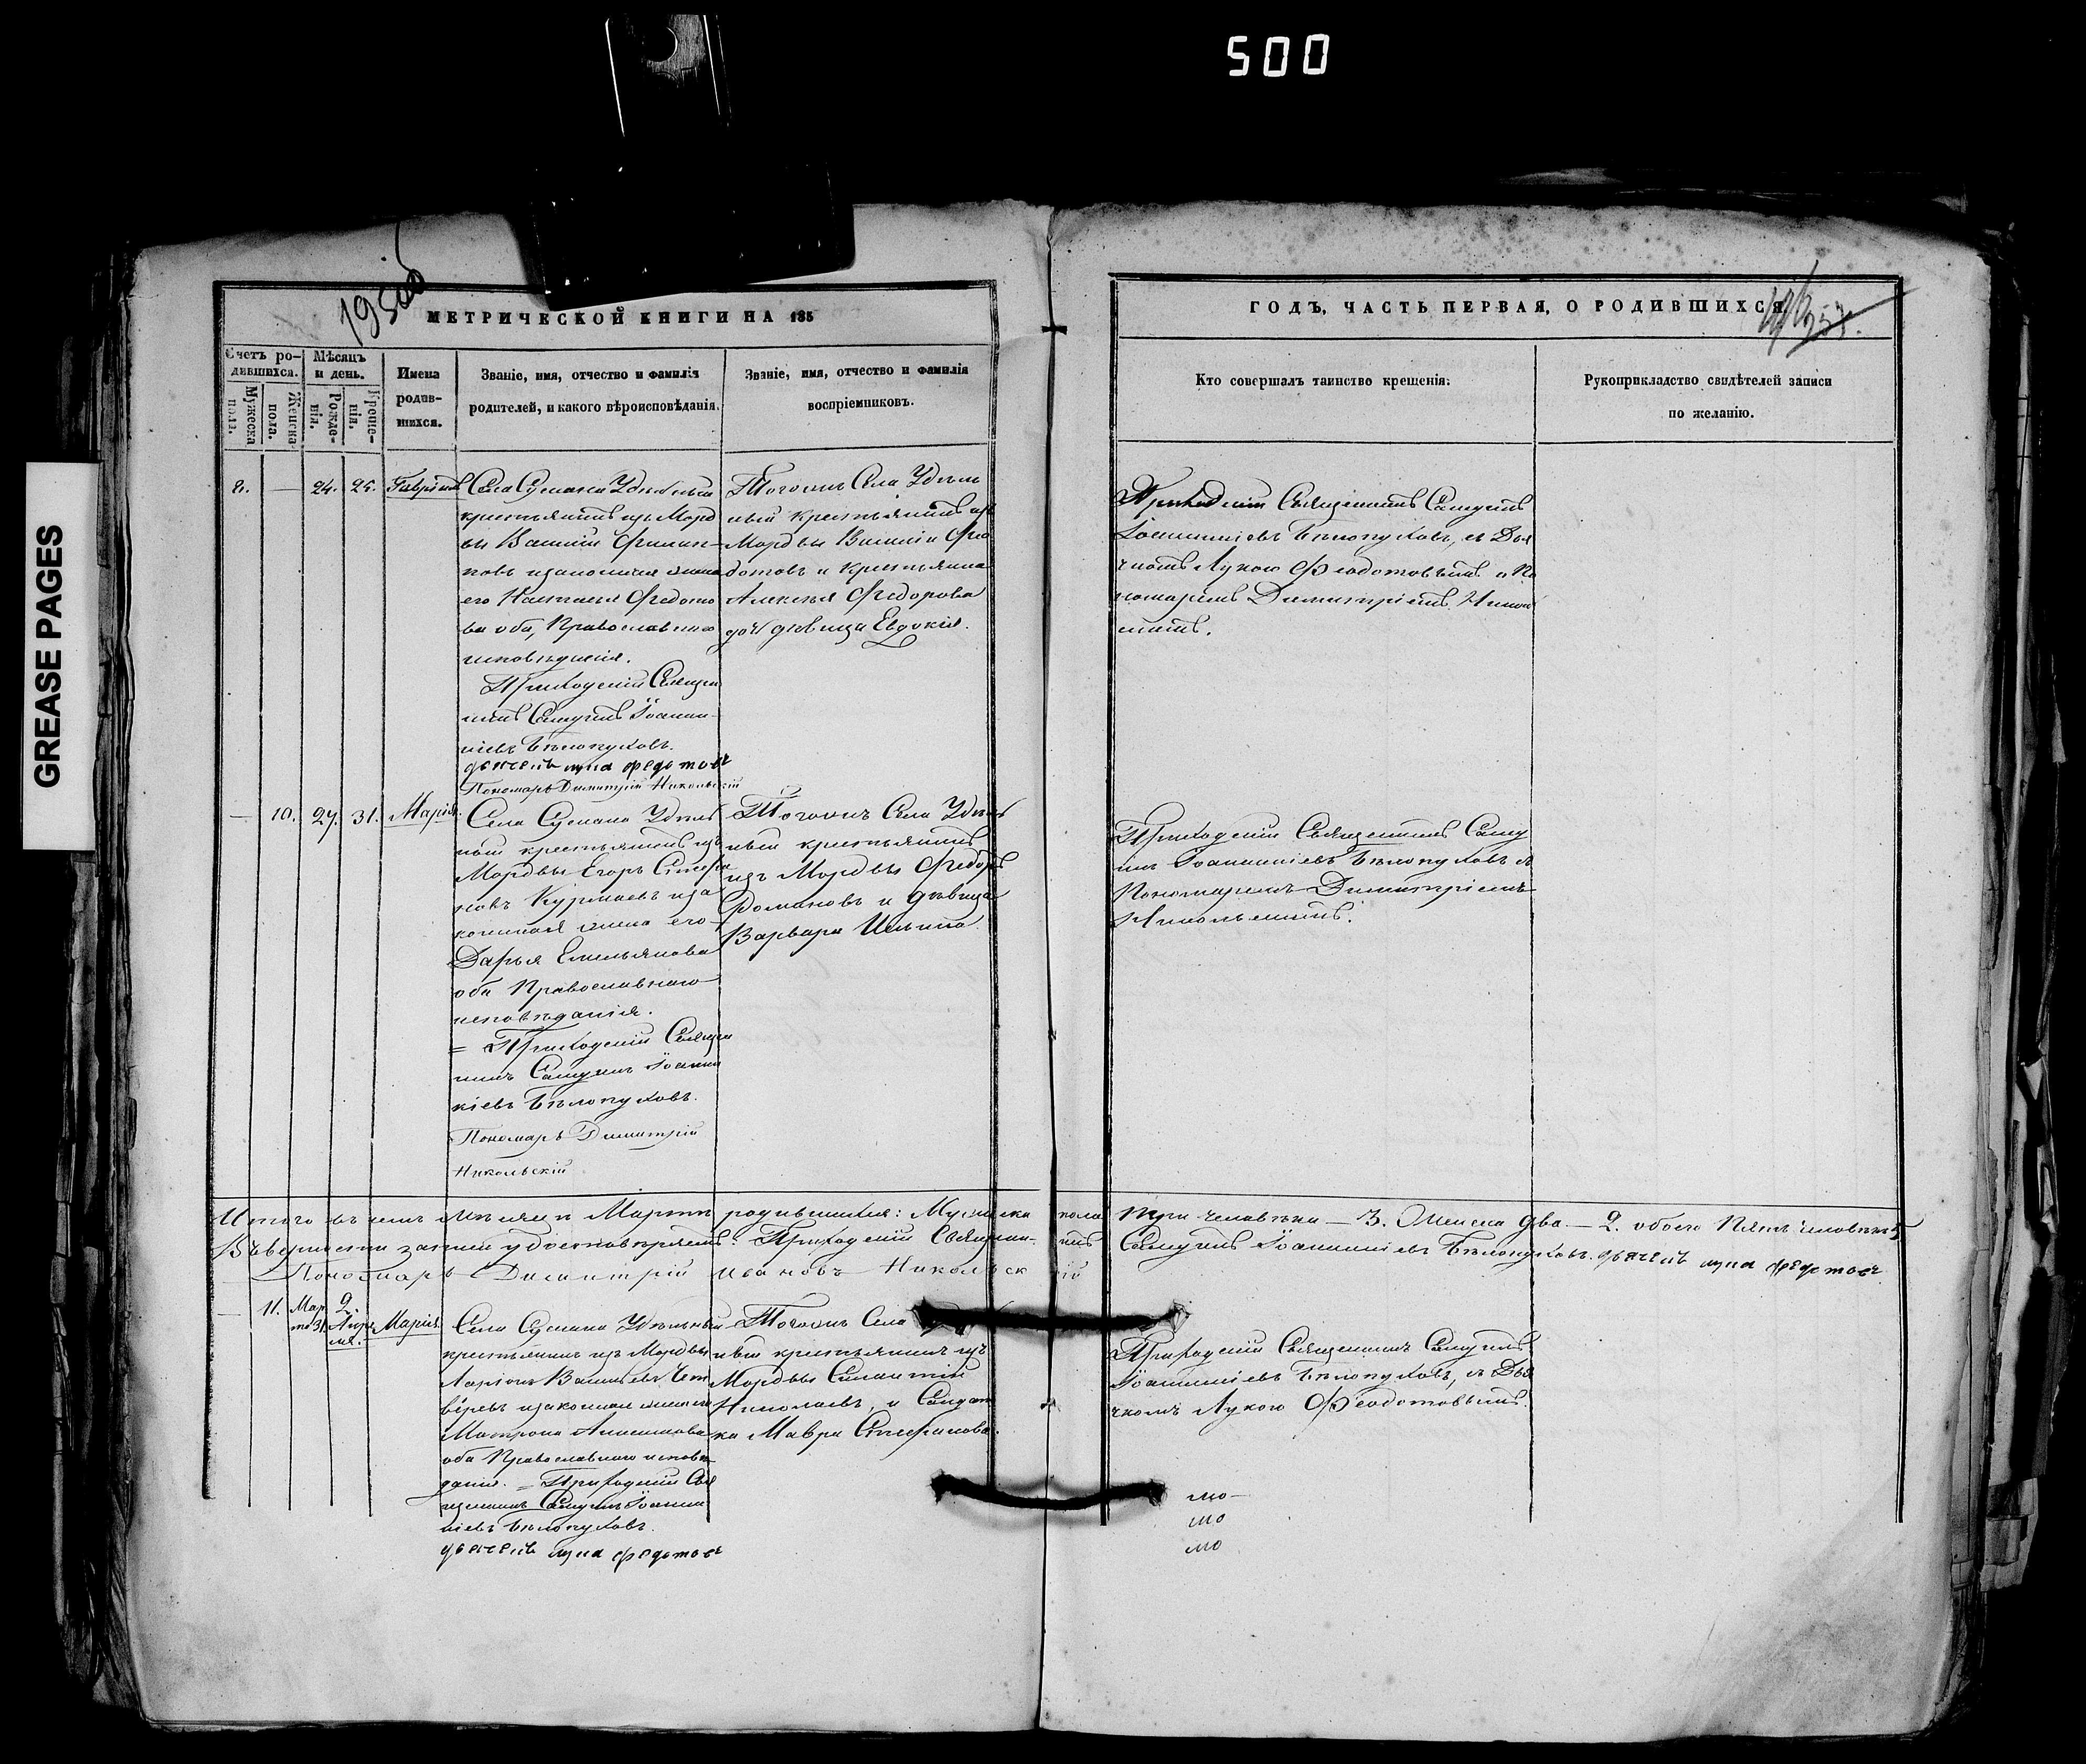 500
GREASE PAGES
195 об
МЕТРИЧЕСКОЙ КНИГИ НА 185
ГОДЪ, ЧАСТЬ ПЕРВАЯ, О РОДИВШИХСЯ.
Счетъ ро-
дившихся.
Мужеска
пола.
Женска
пола.
Мѣсяцъ
и день.
Рожде-
нія.
Креще-
нія.
Имена
родив-
шихся.
Званіе, имя, отчество и фамилія
родителей, и какого вѣроисповѣданія.
Званіе, имя, отчество и фамилія
воспріемниковъ.
Кто совершалъ таинство крещенія.
Рукоприкладство свидѣтелей записи
по желанію.
8. — 24. 25. Гавріилъ
Села Сускана Удѣльный
крестьянинъ изъ Морд
вы Василій Филип-
повъ изаконная жена
его Настасья Федото
ва оба, Православнаго
исповѣданія.
Приходскій Священ
никъ Самуилъ Іоанни-
кіевъ Бѣлопуховъ.
дьячекъ лука федотовъ
Пономарь Димитрій Никольскій
Тогожъ Села Удѣль
ный Крестьянинъ изъ
Мордвы Василій Фео
дотовъ и Крестьянина
Алексѣя Федорова
дочь дѣвица Евдокія.
Приходскій Священникъ Самуилъ
Іоанникіевъ Бѣлопуховъ, съ Дья
чкомъ Лукою Феодотовымъ и По
номаремъ Димитріемъ Николь
скимъ.
— 10. 27. 31. Марія.
Села Сускана Удѣль
ный крестьянинъ изъ
Мордвы Егоръ Стефа
новъ Курмаевъ иза
конная жена его
Дарья Емельянова
оба Православнаго
исповѣданія.
= Приходскій Священ
никъ Самуилъ Іоанни
кіевъ Бѣлопуховъ.
Пономарь Димитрій
Никольскій
Тогожъ Села Удѣль
ный крестьянинъ
изъ Мордвы Федоръ
Романовъ и дѣвица
Варвара Ильина
Приходскій Священникъ Саму
илъ Іоанникіевъ Бѣлопуховъ съ
Пономаремъ Димитріемъ
Никольскимъ.
Итого въ семъ мѣсяцѣ Мартѣ родившихся: Мужеска пола три человѣка — 3. Женска два — 2. обоего Пять человѣкъ 5
Въ вѣрности записи удостовѣряемъ: Приходскій Священникъ Самуилъ Іоанникіевъ Бѣлопуховъ. дьячекъ лука федотовъ
Пономарь Димитрій Ивановъ Никольскій
— 11. Мар
та 31. 2.
Апрѣ
ля. Марія.
Села Сускана Удѣльный
крестьянинъ изъ Мордвы
Ларіонъ Васильевъ
изаконная жена его
Матрона
оба Православнаго исповѣ
данія. = Приходскій Свя
щенникъ Самуилъ Іоанни
кіевъ Бѣлопуховъ.
дьячекъ лука федотовъ
Тогожъ Села
ный крестьянинъ изъ
Мордвы
Николаевъ, и Солдат
ка Мавра Стефанова.
Приходскій Священникъ Самуилъ
Іоанникіевъ Бѣлопуховъ, съ Дья
чкомъ Лукою Феодотовымъ.